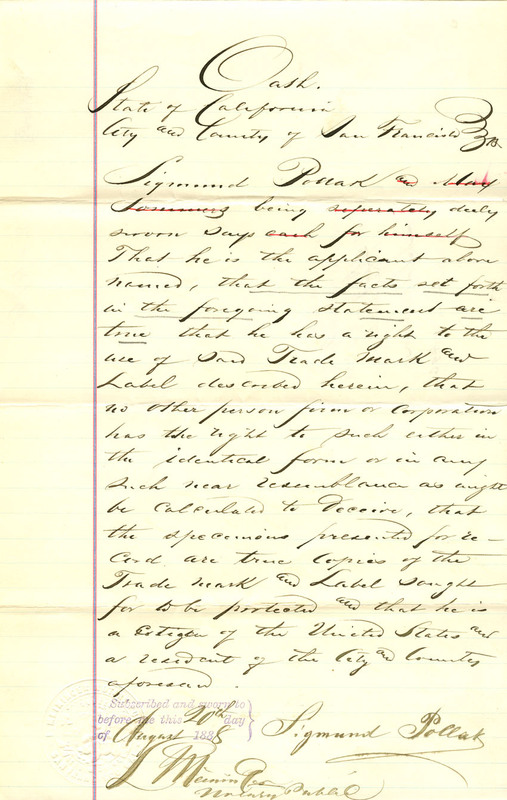 Oath.
State of California
City and County of San Francisco } ss.
Sigmund Pollak and Max
Sommers being seperately duly
sworn says each for himself
That he is the applicant above
named, that the facts set forth
in the foregoing statement are
true that he has a right to the
use of said Trade Mark and
Label described herein, that
no other person firm or corporation
has the right to such either in
the identical form or in any
such near resemblance as might
be calculated to Deceive, that
the specimens presented for re-
cord are true copies of the
Trade mark and Label sought
for to be protected and that he is
a citizen of the United States and
a resident of the City and County
aforesaid.
Subscribed and sworn to
before me this 20th day
of August 188
Sigmund Pollak
Notary Public